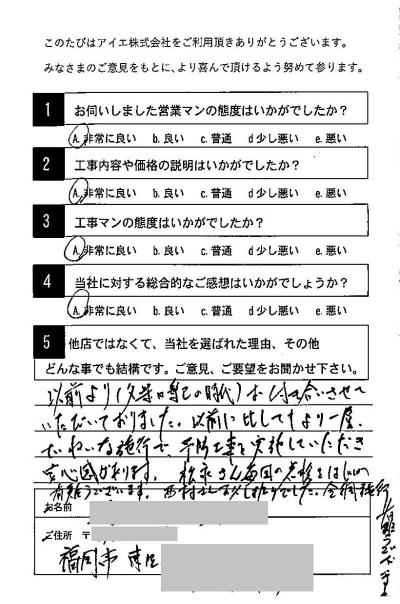 このたびはアイエ株式会社をご利用頂きありがとうございます。
みなさまのご意見をもとに、より喜んで頂けるよう努めて参ります。
1 お伺いしました営業マンの態度はいかがでしたか?
A.非常に良い b.良い c.普通 d 少し悪い e.悪い
2 工事内容や価格の説明はいかがでしたか?
A.非常に良い b.良い c.普通 d 少し悪い e.悪い
3 工事マンの態度はいかがでしたか?
A.非常に良い b.良い c.普通 d 少し悪い e.悪い
4 当社に対する総合的なご感想はいかがでしょうか?
A.非常に良い b.良い c.普通 d 少し悪い e.悪い
5 他店ではなくて、当社を選ばれた理由、その他
どんな事でも結構です。ご意見、ご要望をお聞かせ下さい。
以前より の時代) お付き合いさせて
いただいておりました。以前に比してより一層
ていねいな施行で、 工事を実施していただき
安心感があります。 松永さん毎回の点検をはじめ
有難うございます。西村さん でした。今回施行
有難うございます
お名前
ご住所 〒
福岡市 東区